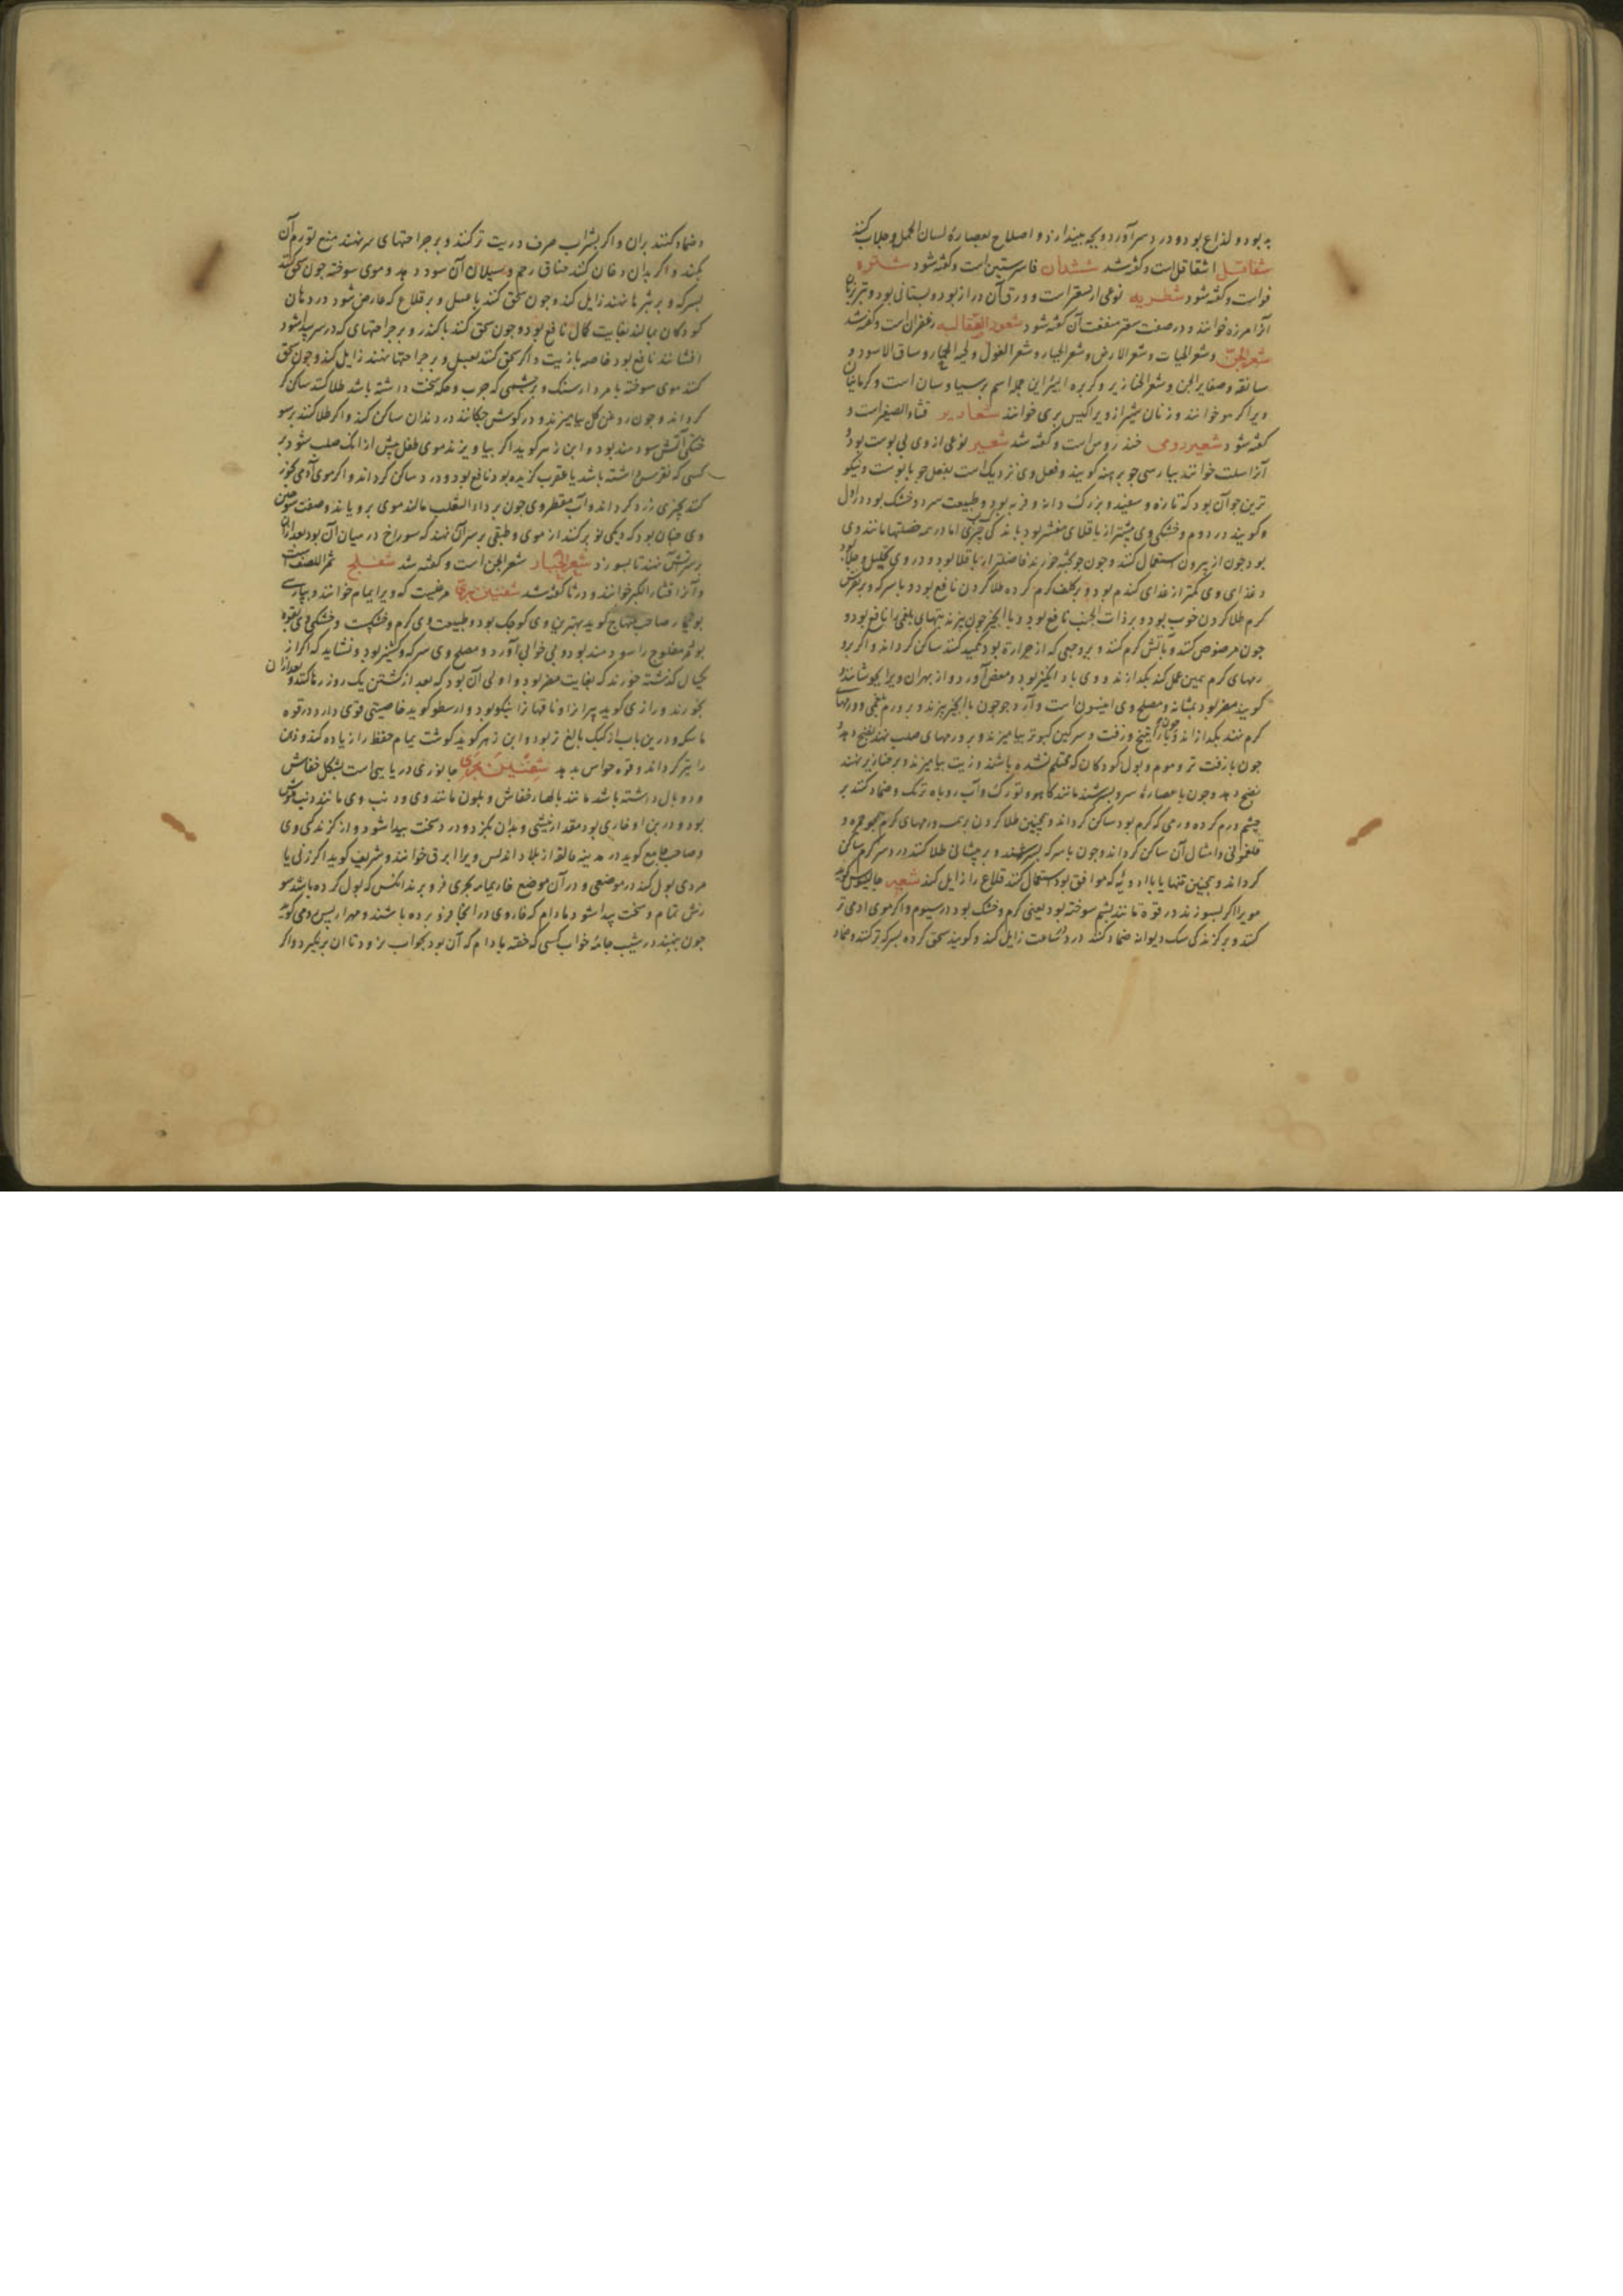 بد بود و لذاع بود و درد سر آورد و بچه بیندازد و اصلاح بعصاره لسان الحمل و جلاب کنند
شقاقل اشقاقل است و گفته شد ششدان فاسرستین است و گفته شود شطره
فواست و گفته شود شطریه نوعی از سعتر است و ورق آن دراز بود و بستانی بود و تبریزیان
آنرا مرزه خوانند و در صفت سعتر منفعت آن گفته شود شعور الصقالبه زعفران است و گفته شد
شعر الجن و شعر الحیات و شعر الارض و شعر الجبار و شعر الغول و لحیه الحمار و ساق الاسود و
ساقه و ضفایر الجن و شعر الخنازیر و کزبره البیر این جمله اسم پرسیاوسان است و کرمانیان
ویرا کرمو خوانند و زنان شیراز ویرا کیس پری خوانند شعاریر قثاء الصغیر است و
گفته شود شعیر رومی خندروس است و گفته شد شعیر نوعی از وی بی پوست بود و
آنرا سلت خوانند بپارسی جو برهنه گویند و فعل وی نزدیک است بفعل جو با پوست و نیکو
ترین جو آن بود که تازه و سفید و بزرگ دانه و فربه بود و طبیعت سرد و خشک بود در اول
و گویند در دوم و خشکی وی بیشتر از باقلای مقشر بود باندکی چیزی اما در همه خصلتها مانند وی
بود چون از بیرون استعمال کنند و چون جو پخته خورند فاضلتر از باقلا بود و در وی تحلیل و جلا بود
و غذای وی کمتر از غذای گندم بود و بر کلف گرم کرده طلا کردن نافع بود و با سرکه و بر نقرس
گرم طلا کردن خوب بود و بر ذات الجنب نافع بود و با انجیر چون بپزند تبهای بلغمی را نافع بود و
چون مرضوض کنند و بآتش گرم کنند و بر وجعی که از حرارة بود تکمید کنند ساکن گرداند و اگر بر
رمهای گرم همین عمل کنند بگدازند و وی باد انگیز بود و مغص آورد
گویند مضر بود بمثانه و مصلح وی انیسون است و آرد جو چون با انجیر بپزند و بر ورم بلغمی و ورمهای
گرم نهند بگدازاند و چون با راتینج و زفت و سرکین کبوتر بیامیزند و بر ورمهای صلب نهند نضج دهد و
چون با زفت تر و موم و بول کودکان که محتلم نشده باشند و زیت بیامیزند و بر خنازیر نهند
نضج دهد و چون با عصارها سرد بسرشند مانند کاهو و تورک و آب روباه ترنک و ضماد کنند بر
چشم ورم کرده ورمی که گرم بود ساکن گرداند و همچنین طلا کردن بر همه ورمهای گرم همچو جمره و
فلغمونی و امثال آن ساکن گرداند و چون با سرکه بسرشند و بر پیشانی طلا کنند درد سر گرم ساکن
گرداند و همچنین تنها یا با ادویه که موافق بود استعمال کنند قلاع را زایل کند شعر جالینوس گوید
مو یرا اگر بسوزند در قوة مانند پشم سوخته بود یعنی گرم و خشک بود در سیوم و اگر موی ادمی تر
کنند و بر گزندگی سک دیوانه ضماد کنند درد در ساعت زایل کند و گویند سحق کرده بسرکه تر کنند و ضماد
و ضماد کنند بران و اگر بشراب صرف و زیت تر کنند و بر جراحتهای سر نهند منع تورم آن
بکند و اگر بدان دخان کنند خناق رحم و سیلان آن سود دهد و موی سوخته چون سحق کنند
بسرکه و بر بثرها نهند زایل کند و چون سحق کنند با عسل و بر قلاع که عارض شود در دهان
کودکان بمالند بغایت کمال نافع بود و چون سحق کنند با کندر و بر جراحتهای که در سر پیدا شود
افشانند نافع بود خاصه با زیت و اگر سحق کنند بعسل و بر جراحتها نهند زایل کند و چون سحق
کنند موی سوخته با مردارسنک و بر چشمی که جرب و حکه سخت داشته باشد طلا کنند ساکن
گرداند و چون روغن گل بیامیزند و در گوش چکانند درد دندان ساکن کند و اگر طلا کنند بر سو
ختگی آتش سودمند بود و ابن زهر گوید اگر بیاویزند موی طفل پیش از انک صلب شود بر
کسی که نقرس داشته باشد یا عقرب گزیده بود نافع بود و درد ساکن گرداند و اگر موی آدمی بخور
کنند چیزی زرد گرداند و آب مقطر وی چون بر داء الثعلب مالند موی برویاند و صفت سوختن
وی چنان بود که دیکی نو پر کنند از موی و طبقی بر سر آن نهند که سوراخ در میان آن بود بعد ازان
بر سر آتش نهند تا بسوزد شعر الجبار شعر الجن است و گفته شد شفلح ثمر اللصف است
و آنرا قثاء الکبر خوانند و در ثا گفته شد شفنین بری مرغیست که ویرا یمام خوانند و بپارسی
بوتیمار صاحب منهاج گوید بهترین وی کوچک بود و طبیعت وی گرم و خشکست و خشکی وی بقوه
بود مفلوج را سودمند بود و بی خوابی آورد و مصلح وی سرکه و کشنیز بود و نشاید که اگر از
یکسال گذشته خورند که بغایت مضر بود و اولی آن بود که بعد از کشتن یک روز رها کنند و بعد ازان
بخورند و رازی گوید پیرانرا و ناقهانرا نیکو بود و ارسطو گوید خاصیتی قوی دارد در قوه
ماسکه و درین باب از کبک بالغ تر بود و ابن زهر گوید گوشت یمام حفظ را زیاده کند و ذهن
را تیز گرداند و قوه حواس بدهد شفنین بحری جانوری دریایی است بشکل خفاش
و دو بال داشته باشد مانند بالهاء خفاش و بلون مانند وی و دنب وی مانند دنب موش
بود و در بن او خاری بود مقدار نیشی و بدان بگزد و درد سخت پیدا شود و از گزندگی وی
و صاحب جامع گوید در مدینه مالقه از بلاد اندلس ویرا ابرق خوانند و شریف گوید اگر زنی یا
مردی بول کند در موضعی و در آن موضع خار یمامه بحری فرو برند انکس که بول کرده باشد سو
زش تمام و سخت پیدا شود مادام که خار وی در انجا فرو برده باشند و مهراریس رومی گوید
چون بنهند در شیب جامه خواب کسی که خفته مادام که آن بود بخواب نرود تا آن برگیرد و اگر